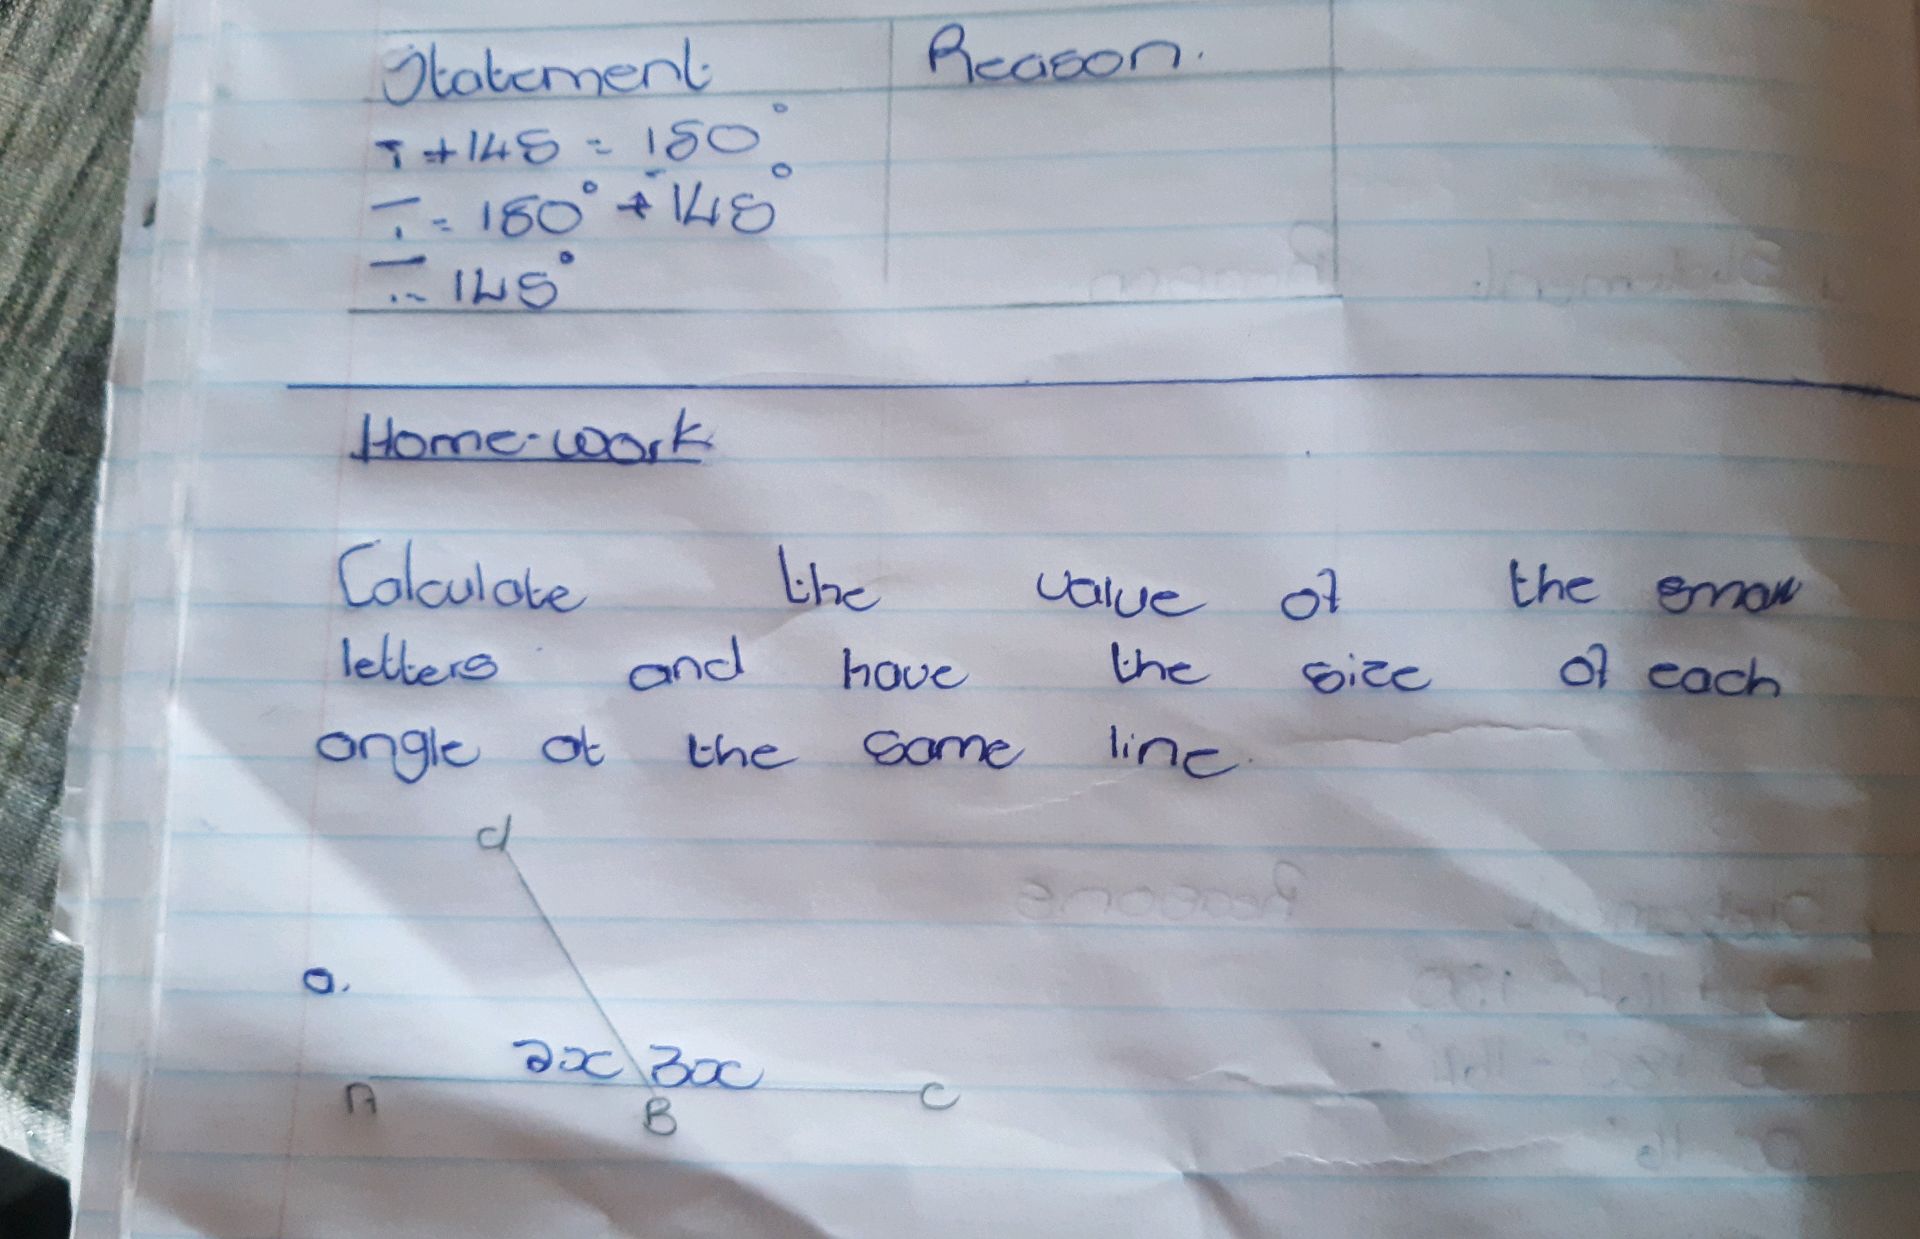 Statement Reason.
T + 145 = 180°
T = 180° + 145°
T = 145°
Home-work
Calculate the value of the small
letters and have the size of each
angle at the same line.
d
a.
2x 3x
A B C